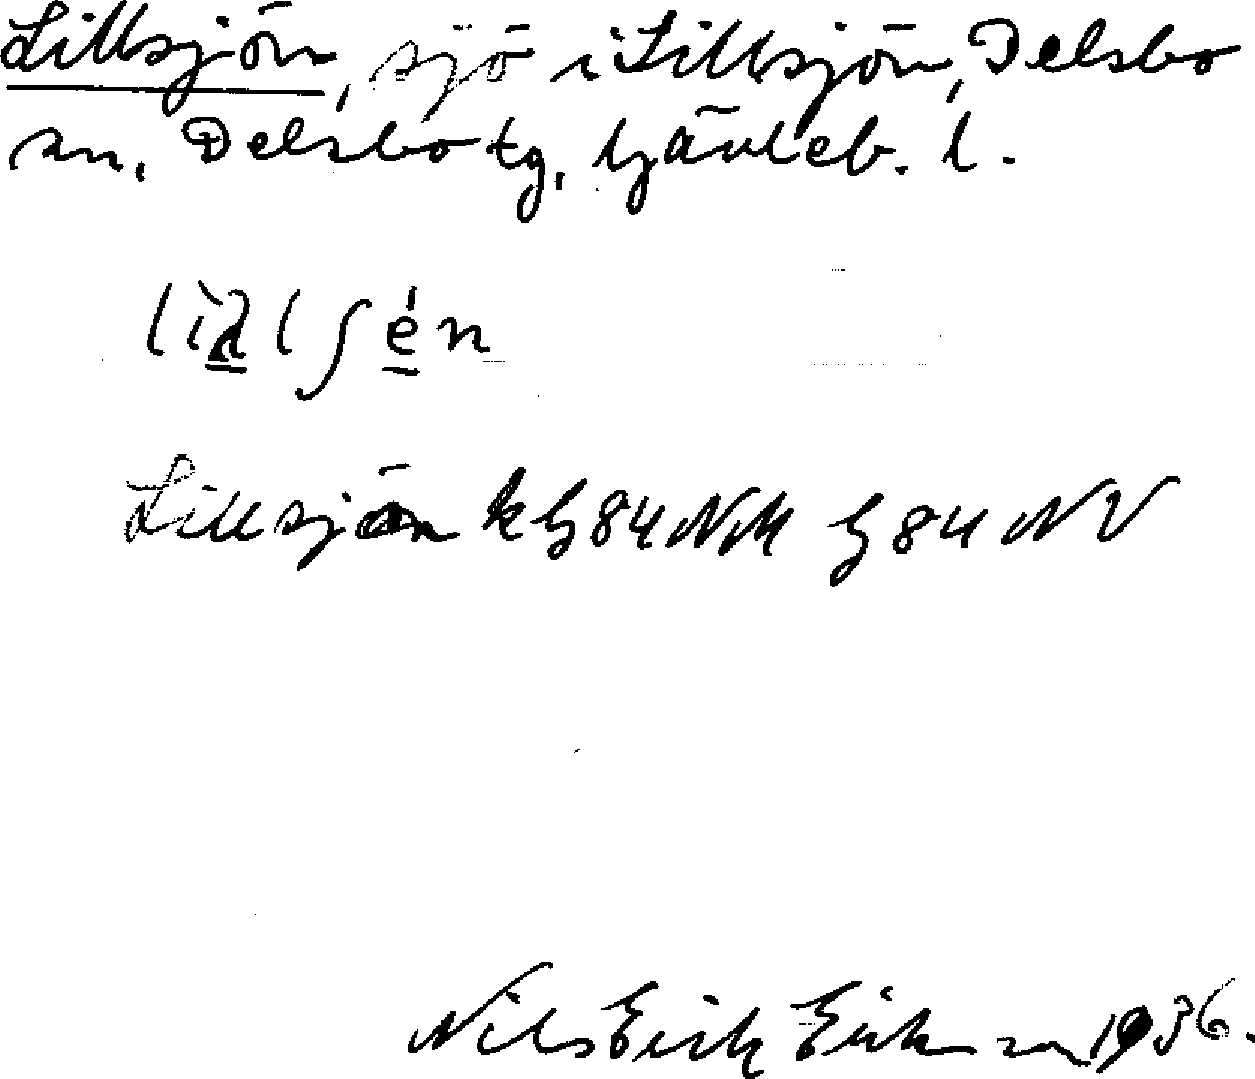 Lillsjön, sjö i Lillsjön, Delsbo
sn, Delsbo tg, Gävleb. l.
Lillsjön k G84NM G84NV
Nils Erik 1936.